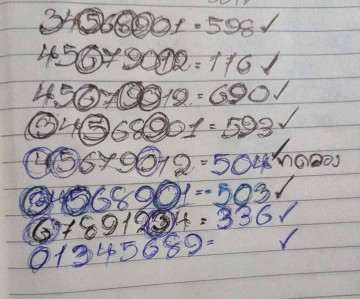 34566901=598✓
45679012=116✓
45679012=690✓
34568901=593✓
45679012=504✓ทดลอง
34568901=503✓
67891234=336✓
01345689= ✓